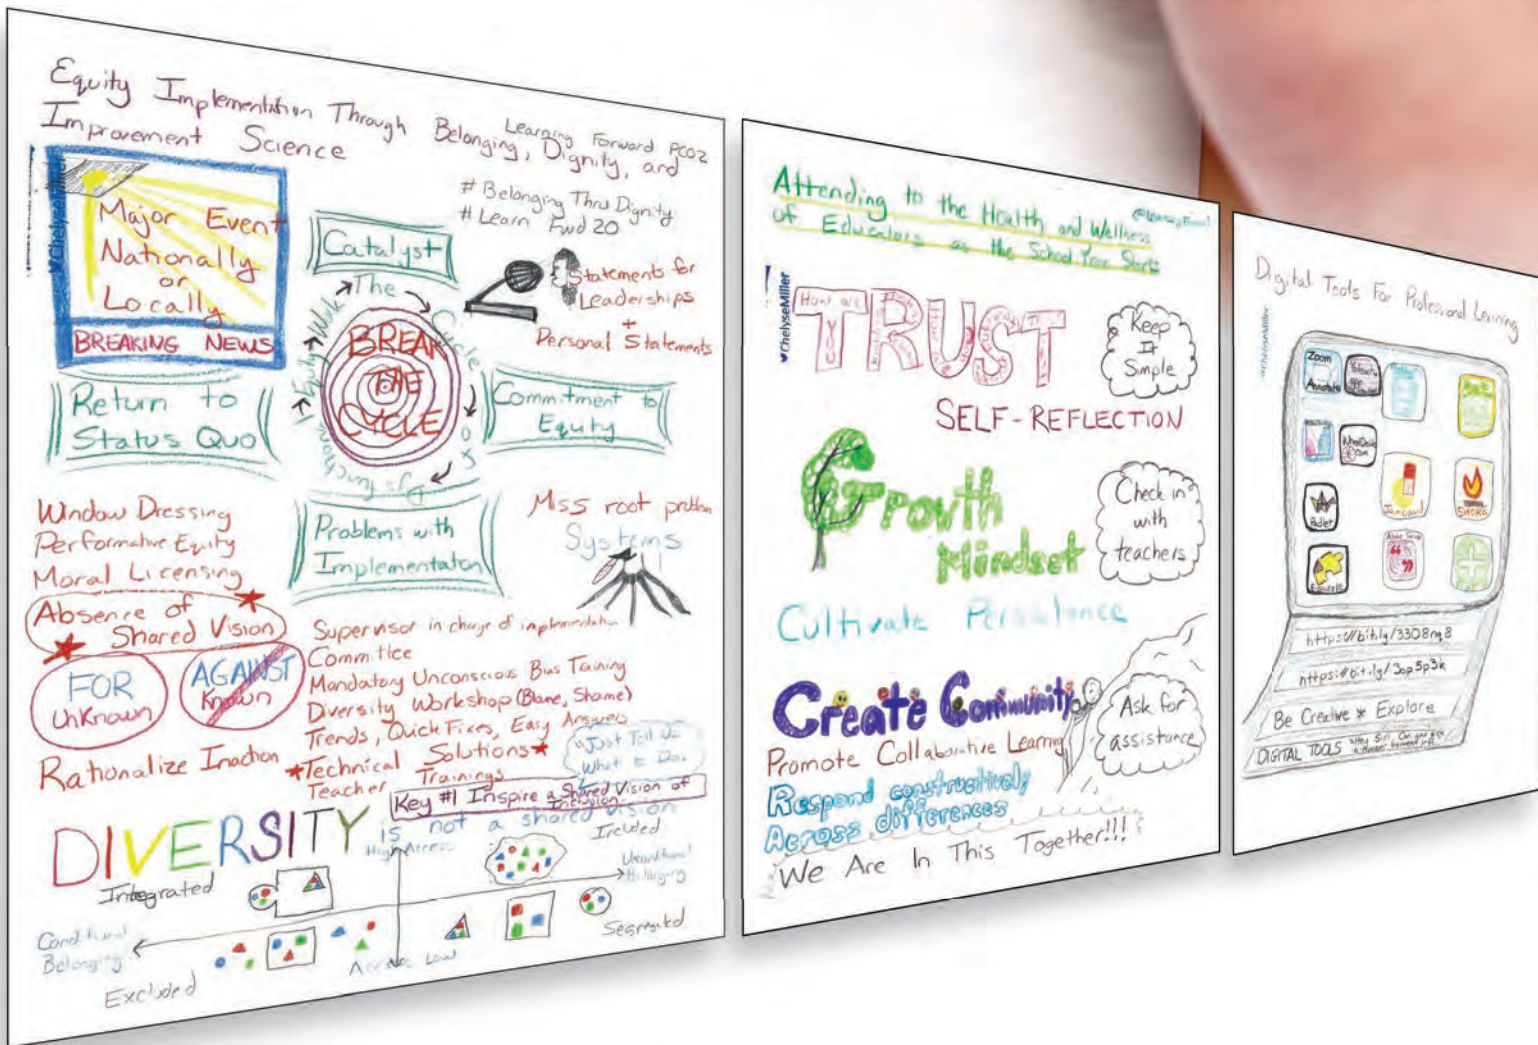 Equity Implementation Through Belonging, Dignity, and
Improvement Science
Learning Forward PC02
# Belonging Thru Dignity
# Learn Fwd 20
ChelyseMiller
Major Event
Nationally
or
Locally
BREAKING NEWS
Catalyst
The Cycle of Dysfunctional Equity Work
BREAK
THE
CYCLE
Statements for
Leaderships
+
Personal Statements
Return to
Status Quo
Commitment to
Equity
Problems with
Implementation
Miss root problem
Systems
Window Dressing
Performative Equity
Moral Licensing
Absence of
Shared Vision
FOR
UnKnown
AGAINST
Known
Rationalize Inaction
Supervisor in charge of implementation
Committee
Mandatory Unconscious Bias Taining
Diversity Workshop (Blame, Shame)
Trends, Quick Fixes, Easy Answers
Technical Solutions
Teacher Trainings
"Just Tell Us
What to Do"
Key #1 Inspire a Shared Vision of
Inclusion
DIVERSITY
is not a shared vision
High Access
Included
Unconditional
Belonging
Integrated
Conditional
Belonging
Segregated
Access Low
Excluded
Attending to the Health and Wellness
of Educators as the School Year Starts
ChelyseMiller
How are
TRUST
Keep
It
Simple
SELF-REFLECTION
Growth
Mindset
Check in
with
teachers
Cultivate Persistance
Create Community
Ask for
assistance
Promote Collaborative Learning
Respond constructively
Across differences
We Are In This Together!!!
Digital Tools For Professional Learning
ChelyseMiller
Zoom
Annotate
WheelDecide
.com
Padlet
Jamboard
https://bit.ly/3308nq8
https://bit.ly/3op5p3k
Be Creative * Explore
DIGITAL TOOLS